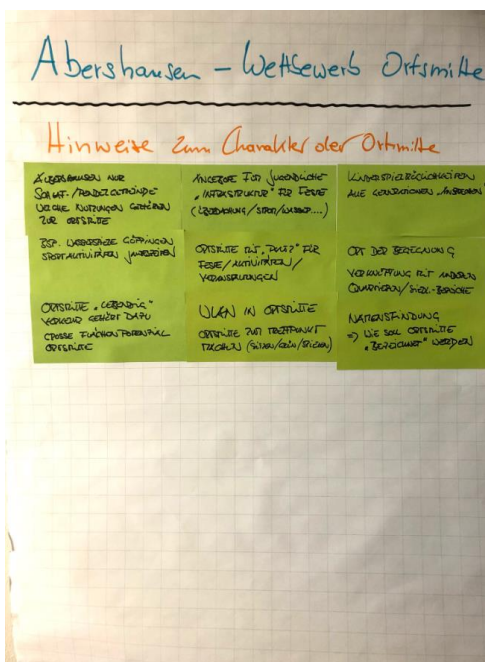 Abershausen – Wettbewerb Ortsmitte
Hinweise zum Charakter der Ortsmitte
ALBERSHAUSEN NUR
SCHLAF-/PENDLERGEMEINDE
WELCHE NUTZUNGEN GEHÖREN
ZUR ORTSMITTE
BSP. WEBERSPIELE GÖPPINGEN
SPORTAKTIVITÄTEN
ORTSMITTE „LEBENDIG"
VERKEHR GEHÖRT DAZU
GROSSE FLÄCHENPOTENZIAL
ORTSMITTE
ANGEBOTE FÜR JUGENDLICHE
„INFRASTRUKTUR" FÜR FESTE
(ÜBERDACHUNG/STROM/WASSER....)
ORTSMITTE MIT „PLATZ" FÜR
FESTE/AKTIVITÄTEN/
VERANSTALTUNGEN
WLAN IN ORTSMITTE
ORTSMITTE ZUM TREFFPUNKT
MACHEN (SITZEN/SEIN/SPIELEN)
KINDERSPIELMÖGLICHKEITEN
ALLE GENERATIONEN „ANSPRECHEN"
ORT DER BEGEGNUNG
VERKNÜPFUNG MIT ANDEREN
QUARTIEREN/SIEDL.-BEREICHE
NAMENSFINDUNG
=> WIE SOLL ORTSMITTE
„BEZEICHNET" WERDEN